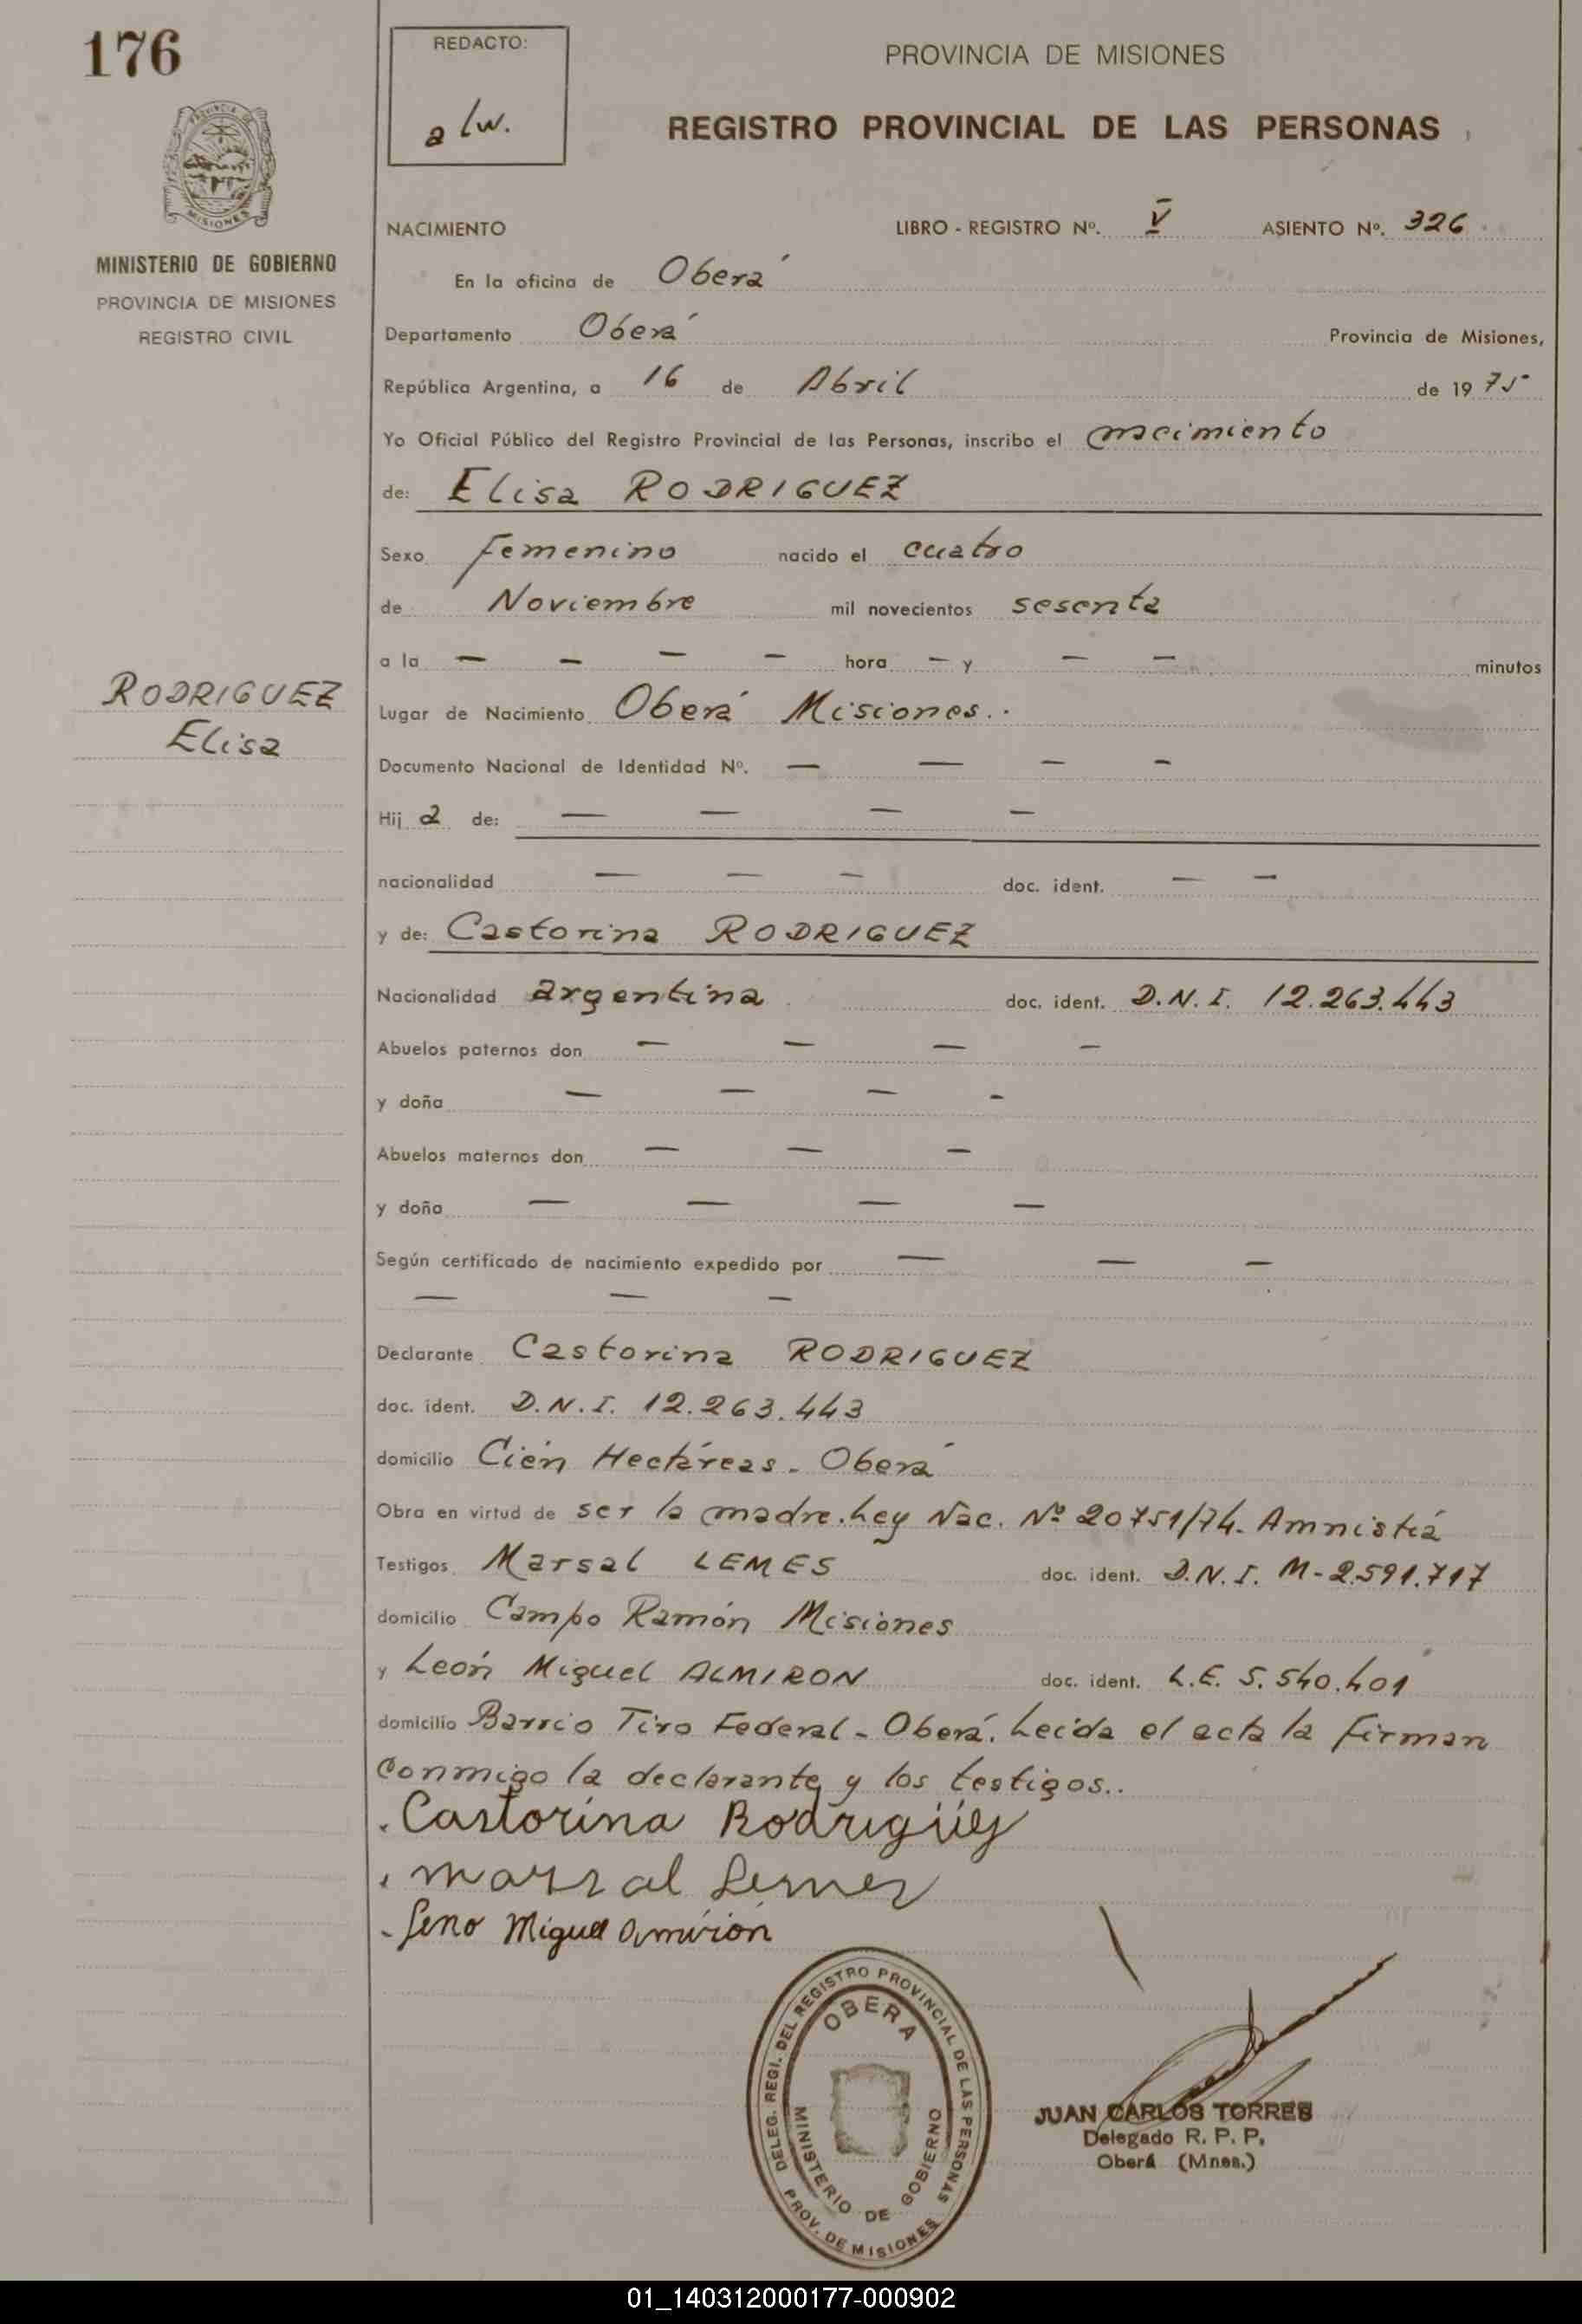 176
REDACTO:
a lw.
PROVINCIA DE MISIONES
REGISTRO PROVINCIAL DE LAS PERSONAS
PROVINCIA DE
MISIONES
MINISTERIO DE GOBIERNO
PROVINCIA DE MISIONES
REGISTRO CIVIL
NACIMIENTO LIBRO - REGISTRO Nº. V ASIENTO Nº. 326
En la oficina de Oberá
Departamento Oberá Provincia de Misiones,
República Argentina, a 16 de Abril de 1975
Yo Oficial Público del Registro Provincial de las Personas, inscribo el nacimiento
de: Elisa RODRIGUEZ
Sexo Femenino nacido el cuatro
de Noviembre mil novecientos sesenta
a la — — — — hora — y — — minutos
RODRIGUEZ
Elisa
Lugar de Nacimiento Oberá Misiones..
Documento Nacional de Identidad Nº. — — — —
Hij a de: — — — —
nacionalidad — — — doc. ident. — —
y de: Castorina RODRIGUEZ
Nacionalidad argentina doc. ident. D.N.I. 12.263.443
Abuelos paternos don — — — —
y doña — — — —
Abuelos maternos don — — —
y doña — — — —
Según certificado de nacimiento expedido por — — —
— — —
Declarante Castorina RODRIGUEZ
doc. ident. D.N.I. 12.263.443
domicilio Cién Hectáreas - Oberá
Obra en virtud de ser la madre. Ley Nac. Nº 20751/74. Amnistiá
Testigos Marsal LEMES doc. ident. D.N.I. M-2.591.717
domicilio Campo Ramón Misiones
y León Miguel ALMIRON doc. ident. L.E. 5.540.401
domicilio Barrio Tiro Federal - Oberá. Leida el acta la firman
conmigo la declarante y los testigos..
Castorina Rodrigüez
marsal Lemes
Leno Miguel Amirión
DELEG. REGI. DEL REGISTRO PROVINCIAL DE LAS PERSONAS
OBERA
MINISTERIO DE GOBIERNO
PROV. DE MISIONES
JUAN CARLOS TORRES
Delegado R. P. P.
Oberá (Mnes.)
01_140312000177-000902